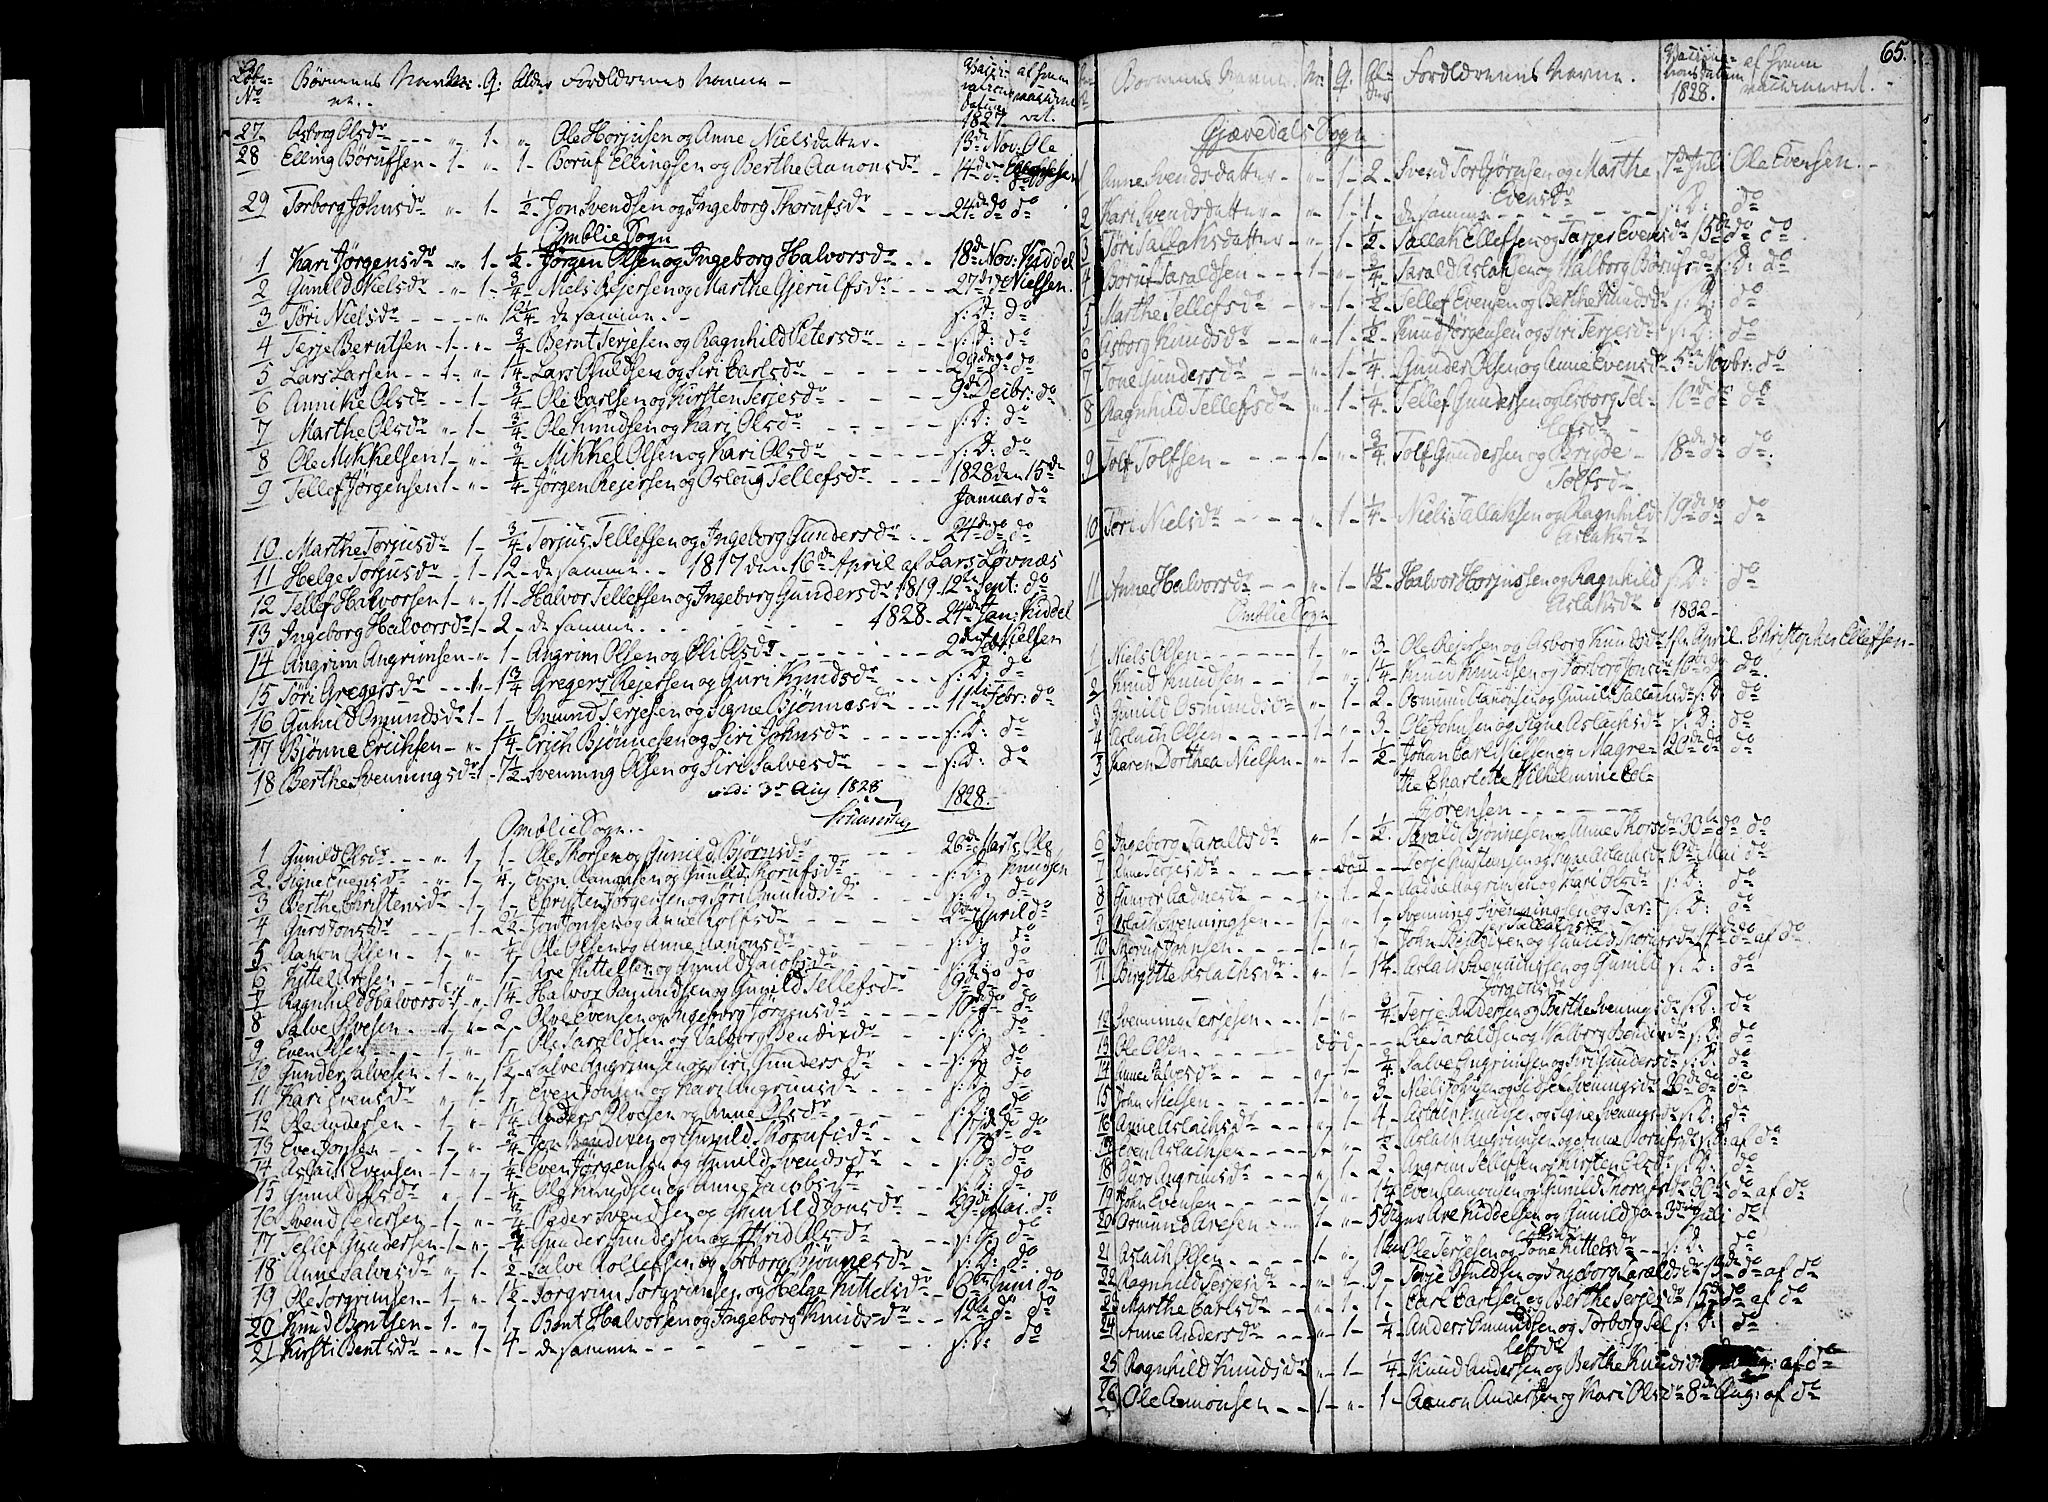 Løbe- No Børnenes Navne. M: Q: Alder Forældrenes Navne - Vacci- nations datum 1827 af hvem vaccine- ret.
27 Asborg Olsdr - - - „ 1- „ Ole Horjusen og Anne Nielsdatter - 13de Nov: Ole
28 Elling Børufsen -1- „ 1- Boruf Ellingsen og Berthe Aanonsdr - 14de do
29 Torborg Johnsdr „ 1- ½- Jon Svendsen og Ingeborg Thorufsdr - - - 24de do do
Omblie Sogn
1 Kari Jørgensdr „ 1- ½- Jørgen Olsen og Ingeborg Halvorsdr - - 18de Nov: Kiddel
2 Gunild Nielsdr - „ 1- ¾- Niels Rejersen og Marthe Gjerulfsdr - - - 27de do Nielsen.
3 Tøri Nielsdr - - - - „ 1 2¼- de samme. - s: D: do
4 Terje Berntsen -1- „ ¾- Bernt Terjesen og Ragnhild Petersdr - - - s: D: do
5 Lars Larsen - - 1- „ 1¼- Lars Ouldsen og Siri Carlsdr - - - - 29de do do
6 Annike Olsdr - - 1- ¾- Ole Carlsen og Kirsten Terjesdr - - - - 9de Decbr: do
7 Marthe Olsdr „ 1- ¾- Ole Knudsen og Kari Olsdr - - - - s: D: do
8 Ole Mikkelsen 1- „ ¾- Mikkel Olsen og Kari Olsdr - - - - s: D: do
9 Tellef Jørgensen 1- „ ¼- Jørgen Rejersen og Osloug Tellefsdr - - - 1828 den 15de
Januar do
10 Marthe Torjusdr - 1- ¾- Torjus Tellefsen og Ingeborg Gundersdr - - 24de do do
11 Helge Torjusdr - 1- 12- de samme. - 1817 den 16de April af Lars Løvnæs
12 Tellef Halvorsen 1- „ 11- Halvor Tellefsen og Ingeborg Gundersdr 1819 12te Sept: do
13 Ingeborg Halvorsdr 1- 2- de samme. - - - - - 1828- 24de Jan: Kiddel
14 Angrim Angrimsen - „ 1- Angrim Olsen og Oli Olsdr - - - - - 2den Febr: Nielsen
15 Tøri Gregersdr - - - 1- 1¾- Gregers Rejersen og Guri Knudsdr - - - s: D: do
16 Gunild Omundsdr 1- 1- Omund Terjesen og Signe Bjønnesdr - - - 11te Febr: do
17 Bjønne Erichsen - „ 1¼- Erich Bjønnesen og Siri Johnsdr - - - - - s: D: do
18 Berthe Svenningsdr 1- 7½- Svenning Olsen og Siri Salvesdr - - - s: D: do
vidi 3de Aug 1828
1828.
Omblie Sogn. -
1 Gunild Olsdr - - - „ 1- 1- Ole Thorsen og Gunild Bjørnsdr - - - 26de Marts Ole
2 Signe Evensdr - „ 1- 4- Even Aanonsen og Gunild Thorufsdr - - s: D: Knudsen
3 Berthe Christensdr - 1- 1- Christen Jørgensen og Tøri Omundsdr - - s: D: do
4 Guro Jonsdr - - - 1- 2½- Jon Jonsen og Anne Rolfsdr - - - - 2den April do
5 Aanon Olsen - 1- „ ¼- Ole Olsen og Anne Aanonsdr - - - - s: D: do
6 Kittel Aresen - 1- „ 1- Are Kittelsen og Gunild Jacobsdr - - - s: D: do
7 Ragnhild Halvorsdr 1- „ 1¼- Halvor Osmundsen og Gunild Tellefsdr - - 9de do do
8 Salve Olvesen - 1- „ 2- Olve Evensen og Ingeborg Jørgensdr - - - 10de do do
9 Even Olsen - - 1- „ 1- Ole Taraldsen og Valborg Bendixdr - - - s: D: do
10 Gunder Salvesen - 1- „ 12- Salve Angrimsen og Siri Gundersdr - - s: D: do
11 Kari Evensdr - „ 1- 1- Even Jonsen og Kari Angrimsdr - - - s: D: do
12 Ole Andersen - 1- „ 1¼- Anders Olvesen og Anne Olsdr - - - s: D: do
13 Even Jonsen - 1- „ ¾- Jon Bendixen og Gunild Thorufsdr - - 17de do do
14 Aslach Evensen - 1- „ ¾- Even Jørgensen og Gunild Svendsdr - - s: D: do
15 Gunild Olsdr - „ 1- ¾- Ole Knudsen og Anne Jacobsdr - - - s: D: do
16 Svend Pedersen - 1- „ ¾- Peder Svendsen og Gunild Jonsdr - - 29de Mai: do
17 Tellef Gundersen - 1- „ ¾- Gunder Gundersen og Astrid Olsdr - - s: D: do
18 Anne Salvesdr - „ 1- 2- Salve Rollefsen og Torborg Bjønnesdr - s: D: do
19 Ole Torgrimsen - 1- „ 1½- Torgrim Torgrimsen og Helge Kittelsdr - 6te Juni do
20 Knud Bentsen - 1- „ 1- Bent Halvorsen og Ingeborg Knudsdr - - 12te do do
21 Kirsti Bentsdr - „ 1- 4- de samme - - - - - s: D: do
65.
Børnenes Navne. M: Q: Al- der Forældrenes Navne. Vaccina- tionsdatum 1828. af hvem vaccineret. -
Gjævedals Sogn
1 Anne Svendsdatter - „ 1- 2- Svend Torbjørnsen og Marthe 7de Juli Ole Evensen. -
Evensdr
2 Kari Svendsdatter - „ 1- 1- de samme - - - - - s: D: do
3 Tøri Tallaksdatter - „ 1- ½- Tallak Ellefsen og Terjer Evensdr 15de do do
4 Boruf Taraldsen - - 1- „ ¾- Tarald Aslaksen og Valborg Børufsdr s: D: do
5 Marthe Tellefsdr - - „ 1- ½- Tellef Evensen og Berthe Knudsdr - s: D: do
6 Asborg Knudsdr - - „ 1- ½- Knud Jørgensen og Siri Terjesdr - s: D: do
7 Tone Gundersdr - - „ 1- ¼- Gunder Olsen og Anne Evensdr 5te Novbr: do
8 Ragnhild Tellefsdr - „ 1- ¼- Tellef Gundersen og Asborg Tel- 10de do do
lefsdr
9 Tolf Tolfsen - - - 1- „ ¾- Tolf Gundersen og Brigde - 18de do do.
Tolfsdr
10 Tøri Nielsdr - - - „ 1- ¼- Niels Tallaksen og Ragnhild 19de do do
Aslaksdr
11 Anne Halvorsdr - - „ 1- 1½- Halvor Horjussen og Ragnhild s: D: do
Aslaksdr
Omblie Sogn 1832-
1 Niels Olsen - - - - 1- „ 3- Ole Rejersen og Asborg Knudsdr 1ste April. Christopher Ellefsen -
2 Knud Knudsen - - 1- „ 1¼- Knud Knudsen og Torborg Jonsdr 10de do do.
3 Gunild Osmundsdr - „ 1- 2- Osmund Aanonsen og Gunild Tallaksdr s: D: do
4 Aslach Olsen - - - 1- „ 3- Ole Johnsen og Signe Aslachsdr s: D: do
5 Karen Dorthea Nielsen - „ 1- ½- Johan Carl Nielsen og Magre- 20de do do
the Charlotte Vilhelmine Col-
bjørensen - - - -
6 Ingeborg Taraldsdr „ 1- ½- Tarald Bjønnesen og Anne Thorsdr 30te do do
7 Anne Terjesdr - - - død - - Terje Knutsen og Signe Aslachsdr 10de Mai do
8 Gunvor Aadnesdr - - „ 1- 2- Aadne Angrimsen og Kari Olsdr s: D: do
9 Aslach Svenningsen - 1- „ 1- Svenning Svenningsen og Tar- s: D: do
10 Thoruf Johnsen - - 1- „ 1- John og Gunild Thorufsdr 14de do af do
11 Birgitte Aslachsdr - „ 1- 1¼- Aslach Svenningsen og Gunild s: D: do
Jørgensdr
12 Svenning Terjesen - - 1- „ ¾- Terje Andersen og Berthe Svenningsdr s: D: do
13 Ole Olsen - - - - død - - Ole Taraldsen og Valborg Bendixdr s: D: do
14 Anne Salvesdr - - „ 1- ¾- Salve Angrimsen og Siri Gundersdr s: D: do
15 John Nielsen - - 1- „ 3- Niels Johnsen og Sidsel Svenningsdr 26de do do
16 Anne Aslachsdr - - „ 1- 4- Aslach Knudsen og Signe Svenningsdr s: D: do
17 Even Aslachsen - - 1- „ ½- Aslach Angrimsen og Anne Torufsdr s: D: af do
18 Guro Angrimsdr - - „ 1- 2- Angrim Tellefsen og Kirsten Olsdr s: D: do
19 John Evensen - - - 1- „ 1¼- Even Aanonsen og Gunild Thorufsdr 30te do af do
20 Osmund Aresen - - - 1- „ 5 Uger Are Kiddelsen og Gunild Ja- 3die Juli do
21 Aslach Olsen - - - 1- „ 1- Ole Terjesen og Tone Kittelsdr - - s: D: do
22 Ragnhild Terjesdr - „ 1- 9- Terje Ouldsen og Ingeborg Taraldsdr 13de do af do
23 Marthe Carlsdr - - „ 1- 1- Carl Carlsen og Berthe Terjesdr 15de do af do
24 Anne Andersdr - - „ 1- ¼- Anders Omundsen og Torborg Tel s: D: do
lefsdr
25 Ragnhild Knudsdr „ 1- ¼- Knud Andersen og Berthe Knudsdr Aug: af do
26 Ole Aanonsen - - 1- „ 1- Aanon Andersen og Kari Olsdr 8de Aug: af do